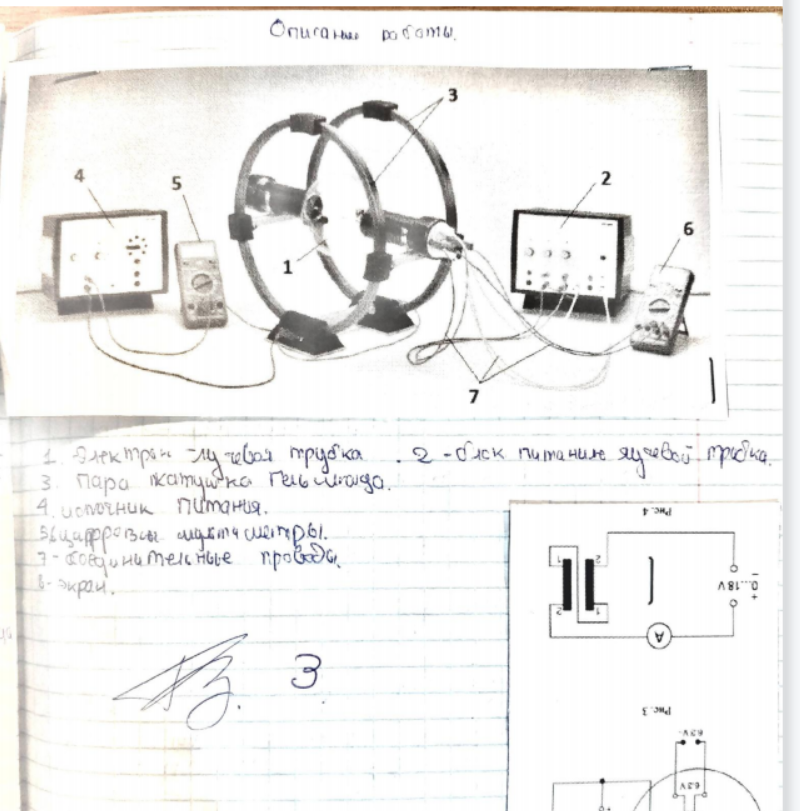 Описание работы.
3
4
5
2
6
1
7
1. Электрон-лучевая трубка. 2 - блок питание лучевой трубка.
3. Пара катушка Гельмгольца.
4. источник питания.
5,6 цифровые мультиметры.
7 - соединительные провода.
8 - экран.
3
Рис. 4
1 2
2 1
0...18V
A
Рис. 3
6.3V~
6.3V